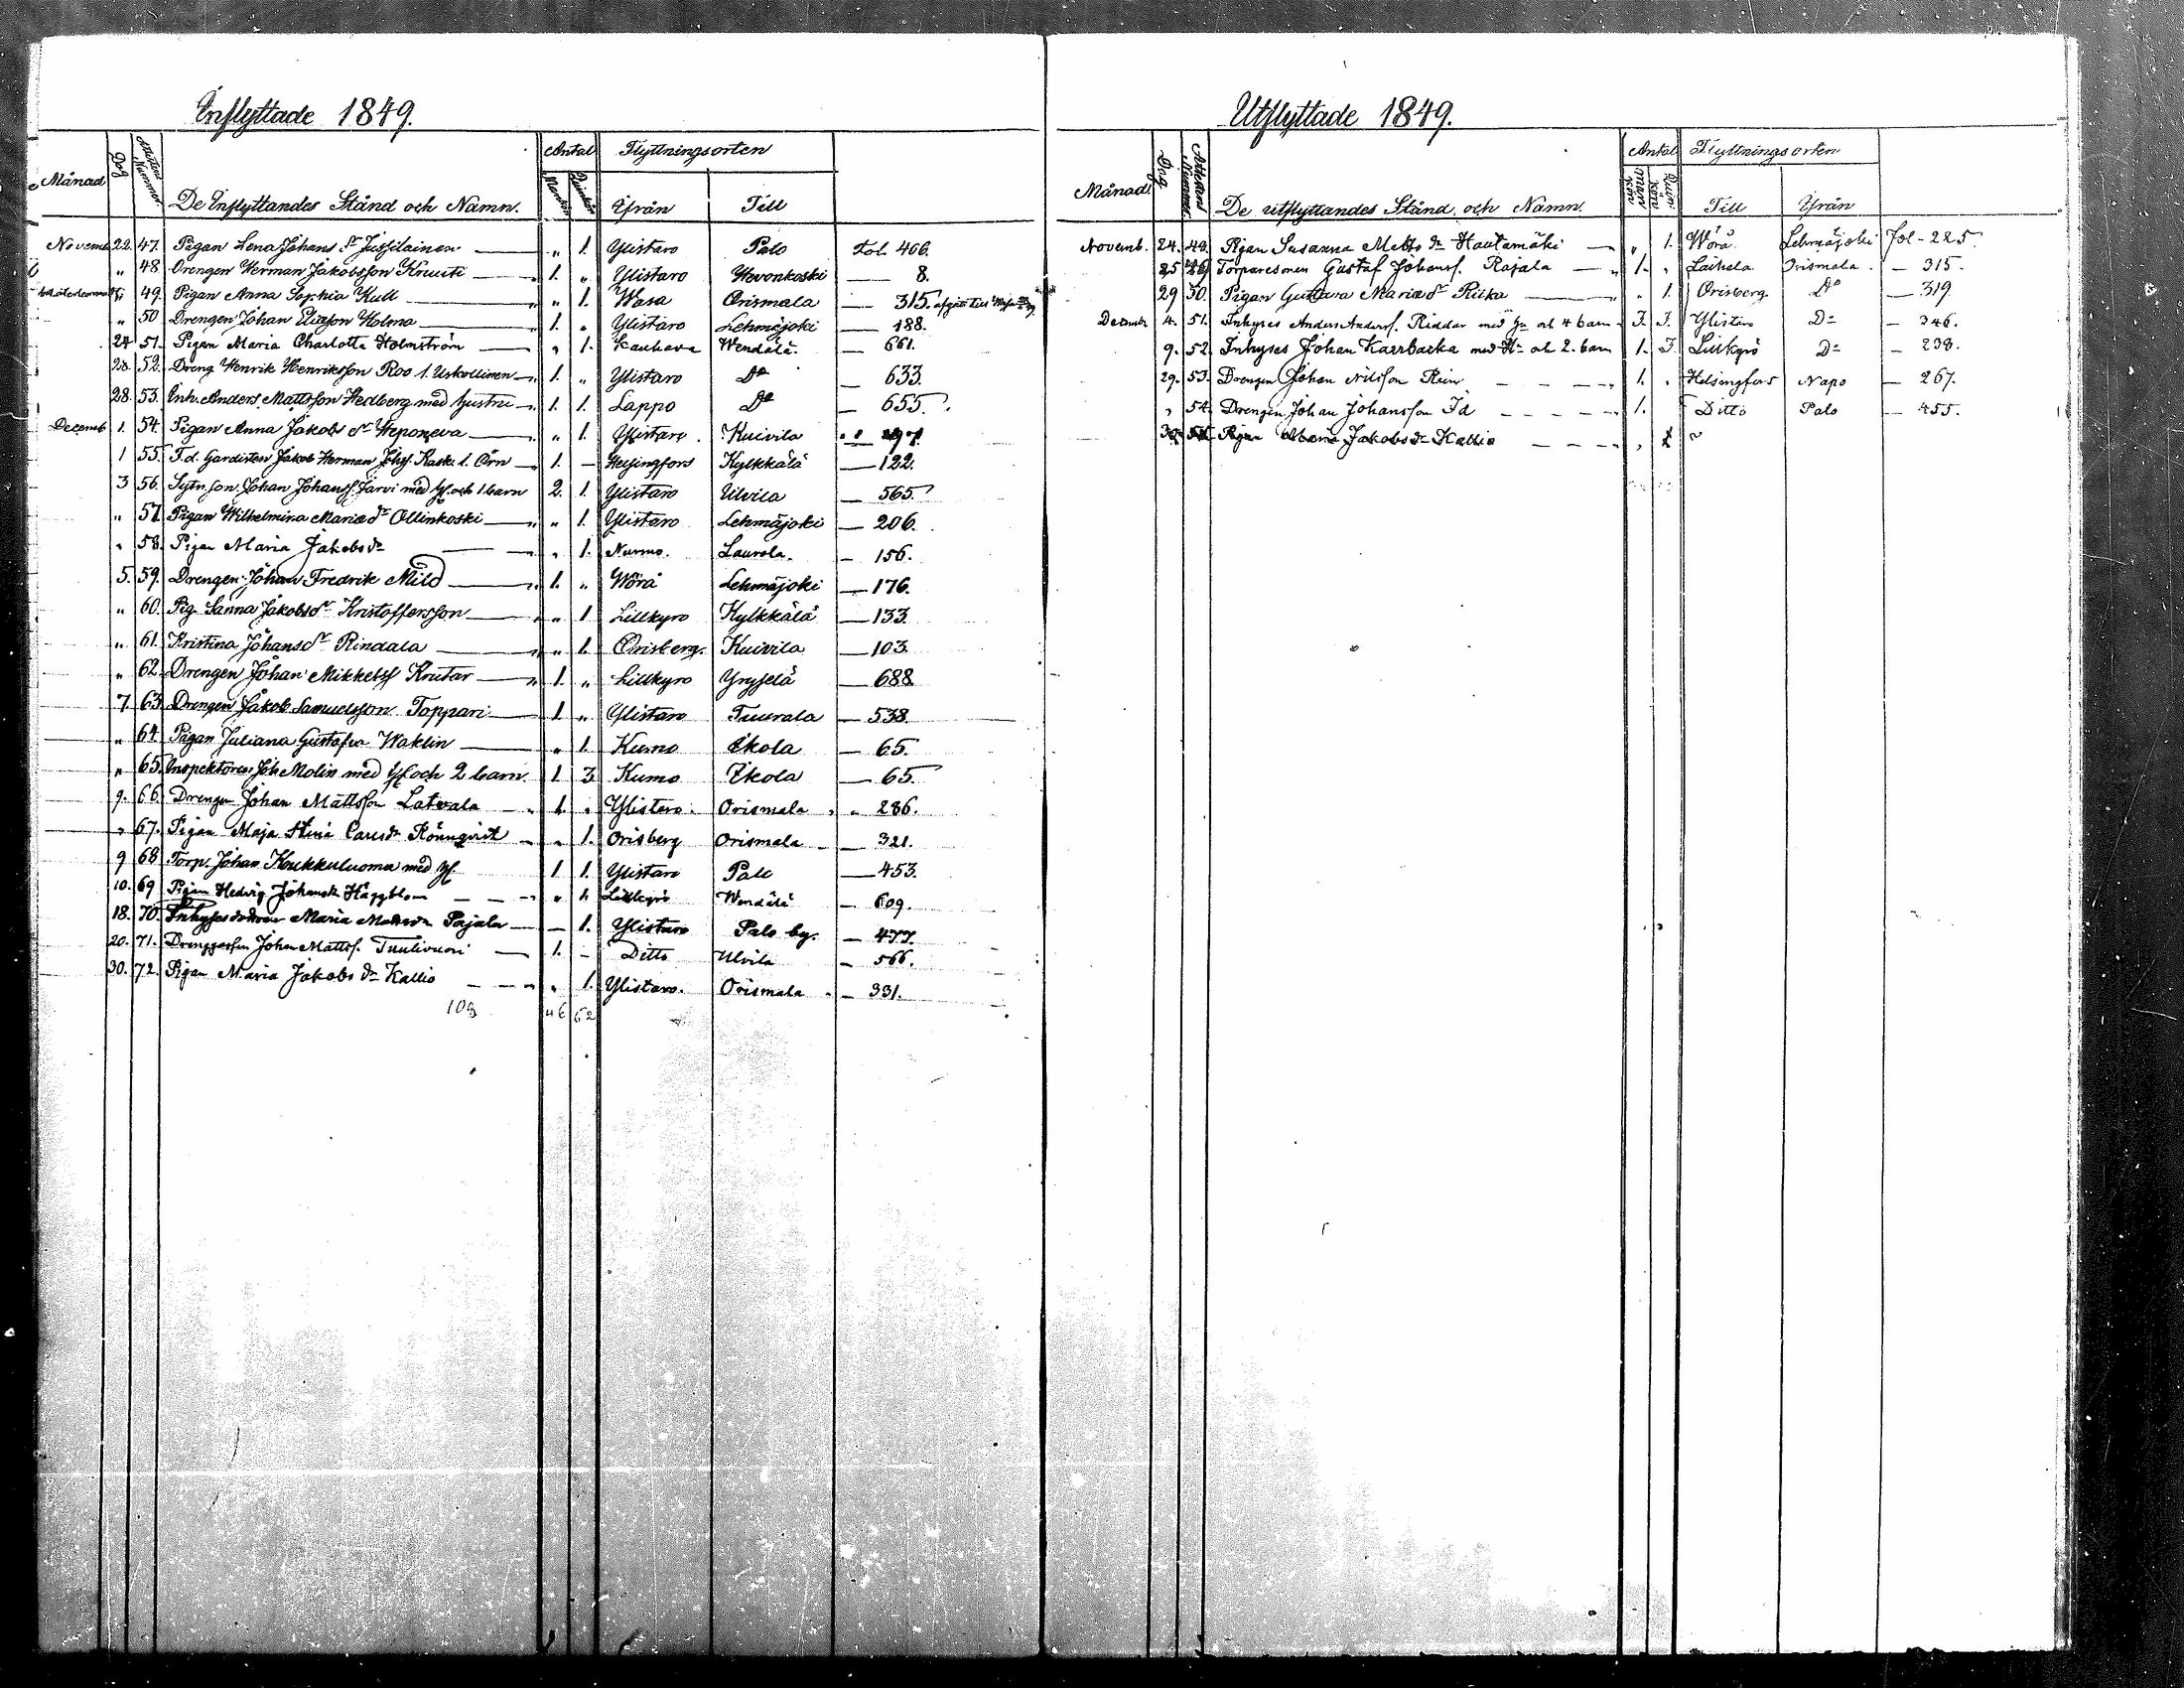 Inflyttade 1849.
Månad Dag Attestens Nummer De Inflyttandes Stånd och Namn. Antal Mankön Qvinkön Flyttningsorten Ifrån Till
Novemb 22. 47. Pigan Lena Johans dr Jussilainen — „ 1. Ylistaro Palo Fol. 406.
„ 48. Drengen Herman Jakobsson Knuuti — 1. „ Ylistaro Hevonkoski — 8.
49. Pigan Anna Sophia Kull — „ 1. Wasa Orismala — 315.
„ 50 Drengen Johan Eliasson Holma — 1. „ Ylistaro Lehmäjoki — 188.
24 51. Pigan Maria Charlotta Holmström — „ 1. Kauhava Wendälä. — 661.
28. 52. Dreng Henrik Henriksson Roo l. Uskollinen — 1. „ Ylistaro Do — 633.
28. 53. Inh. Anders Mattsson Hedberg med hustru — 1. 1. Lappo Do — 655.
Decemb 1. 54. Pigan Anna Jakobs dr Heponeva — „ 1. Ylistaro. Kuivila
1 55. F.d. Gardisten Jakob Herman Johss. Kask. l. Örn — 1. — Helsingfors Kylkkälä — 122.
3 56. Sytn.son. Johan Johanss. Järvi med h. och 1 barn 2. 1. Ylistaro Ulvila — 565.
„ 57. Pigan Wilhelmina Maria dr Ollinkoski — „ 1. Ylistaro Lehmäjoki — 206.
„ 58. Pigan Maria Jakobs dr — „ 1. Nurmo. Laurola. — 156.
5. 59. Drengen Johan Fredrik Mild — 1. „ Wörå Lehmäjoki — 176.
„ 60. Pig. Sanna Jakobsdr Kristoffersson — „ 1 Lillkyro Kylkkälä — 133.
„ 61. Kristina Johansdr Rindala — „ 1. Orisberg. Kuivila — 103.
„ 62. Drengen Johan Mikkelss Krutar — 1. „ Lillkyro Yryselä — 688.
7. 63. Drengen Jakob Samuelsson Toppari — 1. „ Ylistaro Tuurala — 538.
„ 64. Pigan Juliana Gustafva Waklin — „ 1. Kumo Ikola — 65.
„ 65. Inspektoren Joh Molin med h. och 2 barn. 1 3 Kumo Ikola — 65.
9. 66. Drengen Johan Mattsson Latvala — 1. „ Ylistaro. Orismala „ 286.
„ 67. Pigan Maja Stina Carlsdr Rönnqvist — „ 1. Orisberg Orismala — 321.
9 68 Torp. Johan Koukkuluoma med h. 1 1. Ylistaro Palo — 453.
10. 69 Pigan Hedvig Johansdr Häggblom — „ 1. Lillkyrö Wendälä — 609.
18. 70. Maria Pajala — 1. Ylistaro Palo by. — 477.
20. 71. Johan Mattss. Tuulivuori — 1. — Ditto Ulvila — 566.
30. 72. Pigan Maria Jakobs dr Kallio — „ 1. Ylistaro. Orismala — 331.
108 46 62
Utflyttade 1849.
Månad Dag Attestens Nummer De utflyttandes Stånd och Namn. Antal Mankön Qvinkön Flyttningsorten Till Ifrån
Novemb. 24. 48. Pigan Susanna Matts dr Hautamäki — „ 1. Wörå Lehmäjoki Fol - 225.
25 49. Torparesonen Gustaf Johanss. Rajala — 1. „ Laihela Orismala. — 315.
29 50. Pigan Gustava Maria dr Riika — „ 1. Orisberg Do — 319.
Decemb 4. 51. Inhyses Anders Anderss. Riddar med hu och 4 barn 3. 3. Ylistaro Do — 346.
9. 52. Inhyses Johan Karrbacka med H. och 2. barn 1. 3. Lillkyrö Do — 238.
29. 53. Drengen Johan Nilsson Rein — 1. „ Helsingfors Napo — 267.
„ 54. Drengen Johan Johansson Id — 1. Ditto Palo — 455.
Pigan Maria Jakobs dr Kallio — „